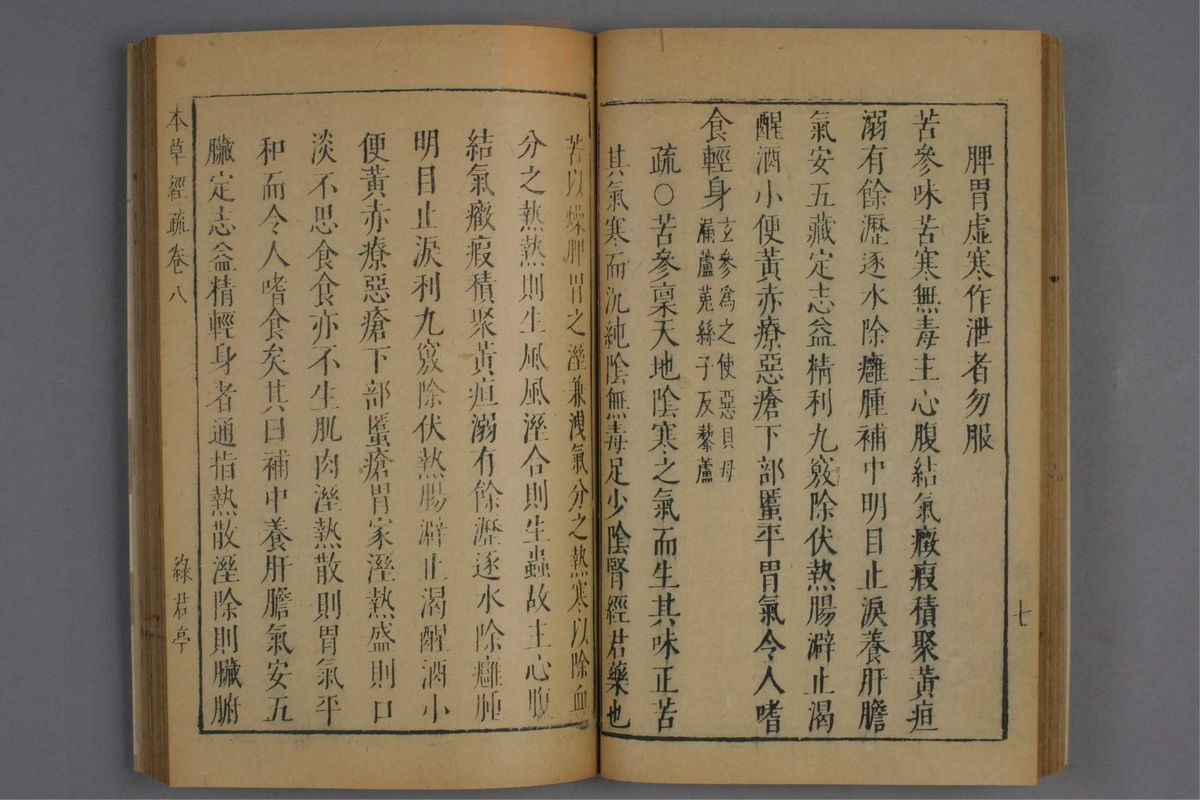 七
脾胃虛寒作泄者勿服
苦參味苦寒無毒主心腹結氣癥瘕積聚黃疸
溺有餘瀝逐水除癰腫補中明目止淚養肝膽
氣安五藏定志益精利九竅除伏熱腸澼止渴
醒酒小便黃赤療惡瘡下部䘌平胃氣令人嗜
食輕身玄參爲之使惡貝母
漏蘆菟絲子反藜蘆
疏○苦參稟天地陰寒之氣而生其味正苦
其氣寒而沉純陰無毒足少陰腎經君藥也
苦以燥脾胃之溼兼洩氣分之熱寒以除血
分之熱熱則生風風溼合則生蟲故主心腹
結氣癥瘕積聚黃疸溺有餘瀝逐水除癰腫
明目止淚利九竅除伏熱腸澼止渴醒酒小
便黃赤療惡瘡下部䘌瘡胃家溼熱盛則口
淡不思食食亦不生肌肉溼熱散則胃氣平
和而令人嗜食矣其曰補中養肝膽氣安五
臟定志益精輕身者通指熱散溼除則臟腑
本草經疏卷八
綠君亭